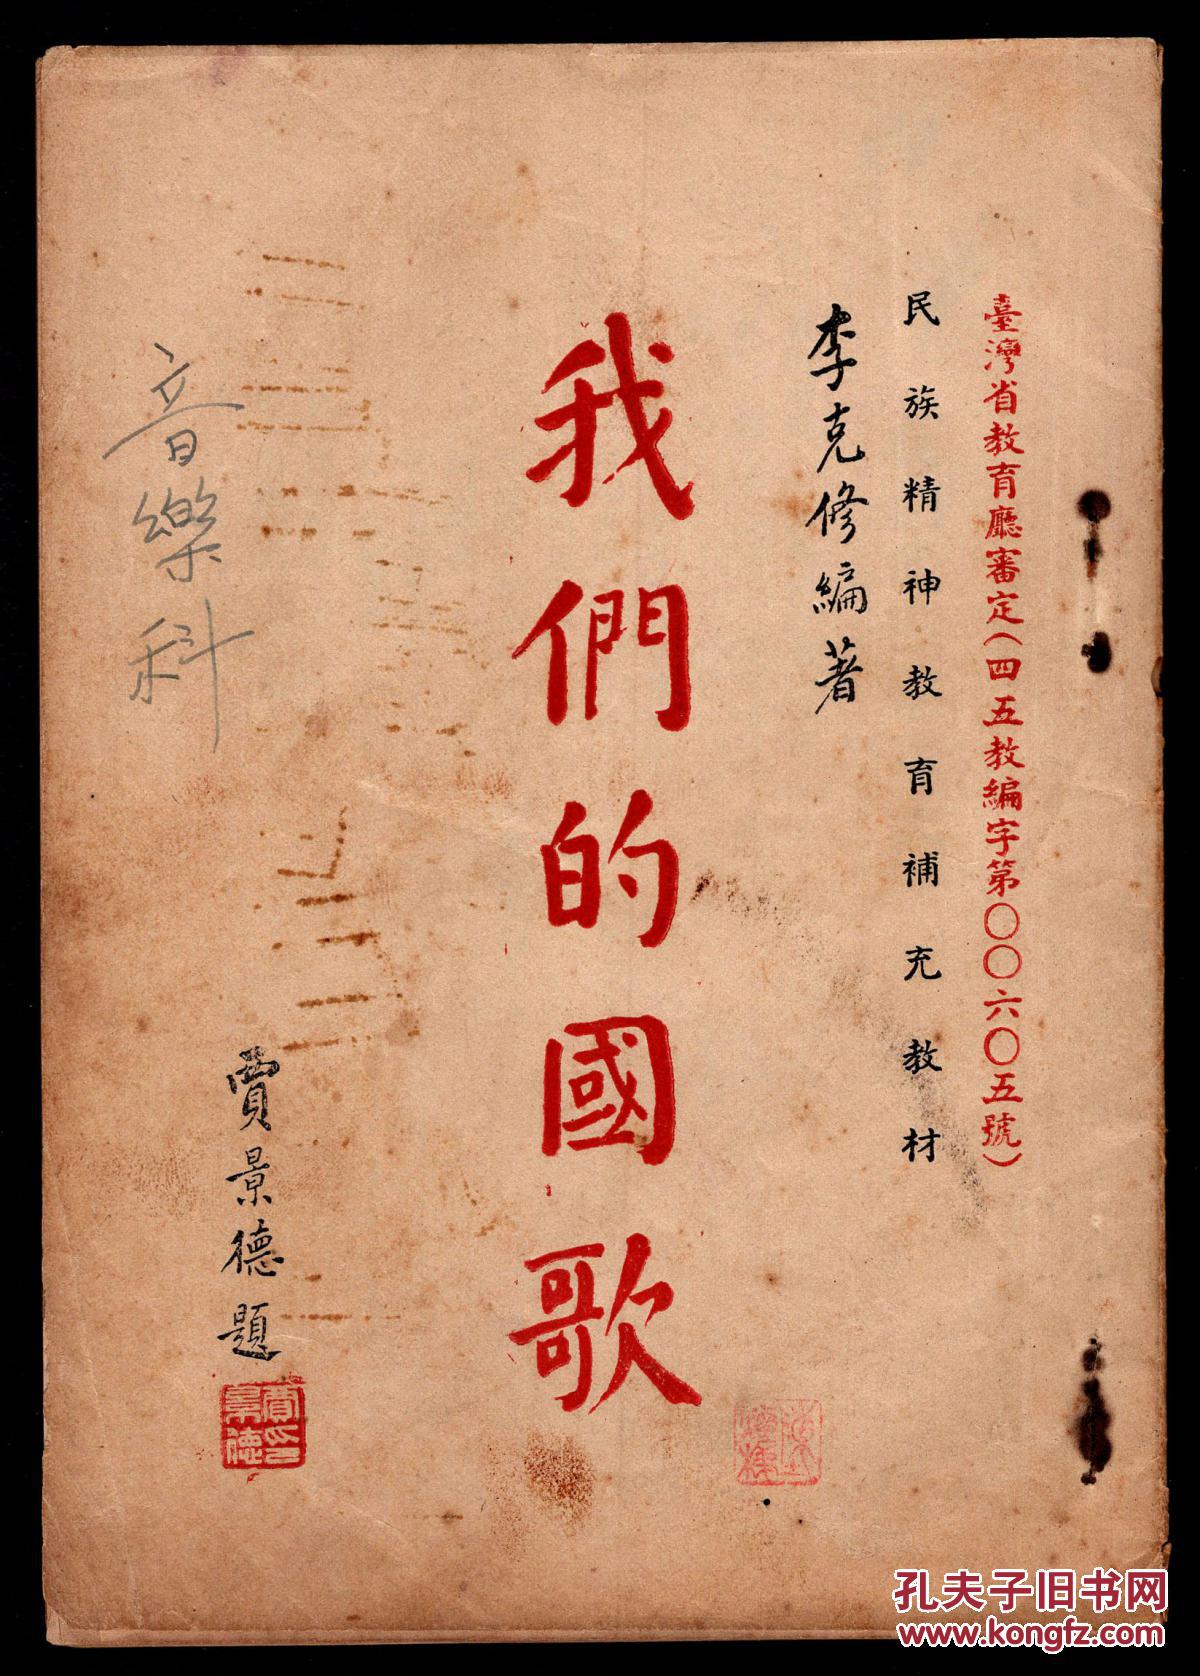 臺灣省教育廳審定(四五教編字第〇〇六〇五號)
民族精神教育補充教材
李克修編著
我們的國歌
賈景德題
賈景德印
音樂科
孔夫子旧书网
www.kongfz.com